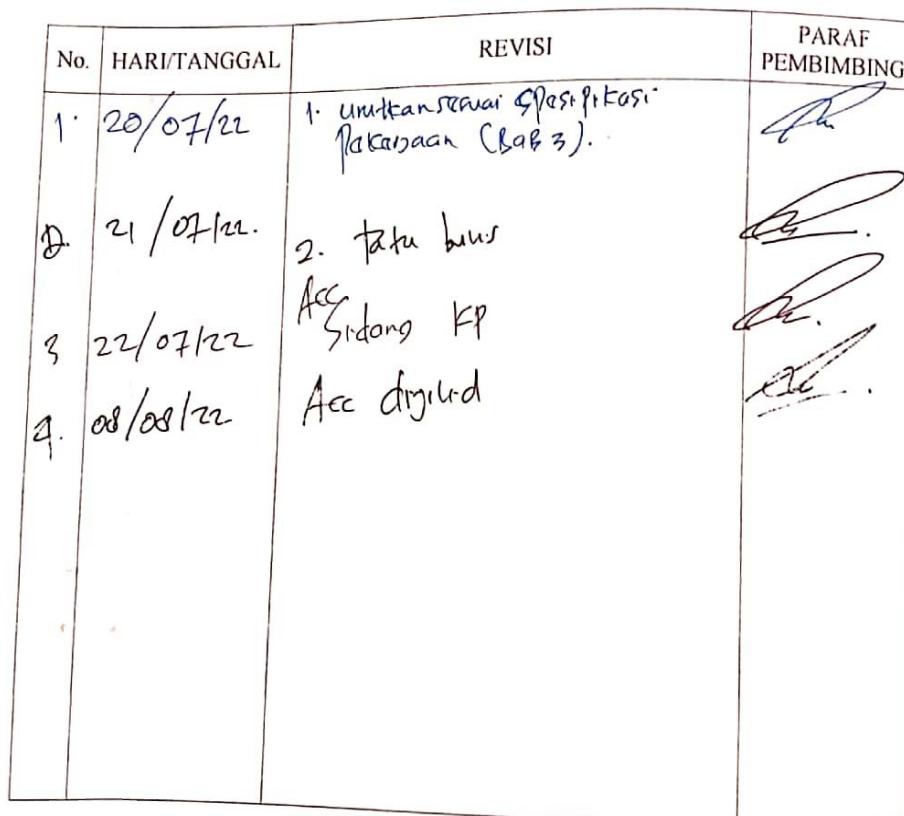 No. HARI/TANGGAL REVISI PARAF PEMBIMBING
1. 20/07/22 1. urutkan sesuai spesifikasi
pekerjaan (BAB 3).
2. 21/07/22. 2. tata tulis
3 22/07/22 Acc
Sidang KP
4. 08/08/22 Acc dijilid